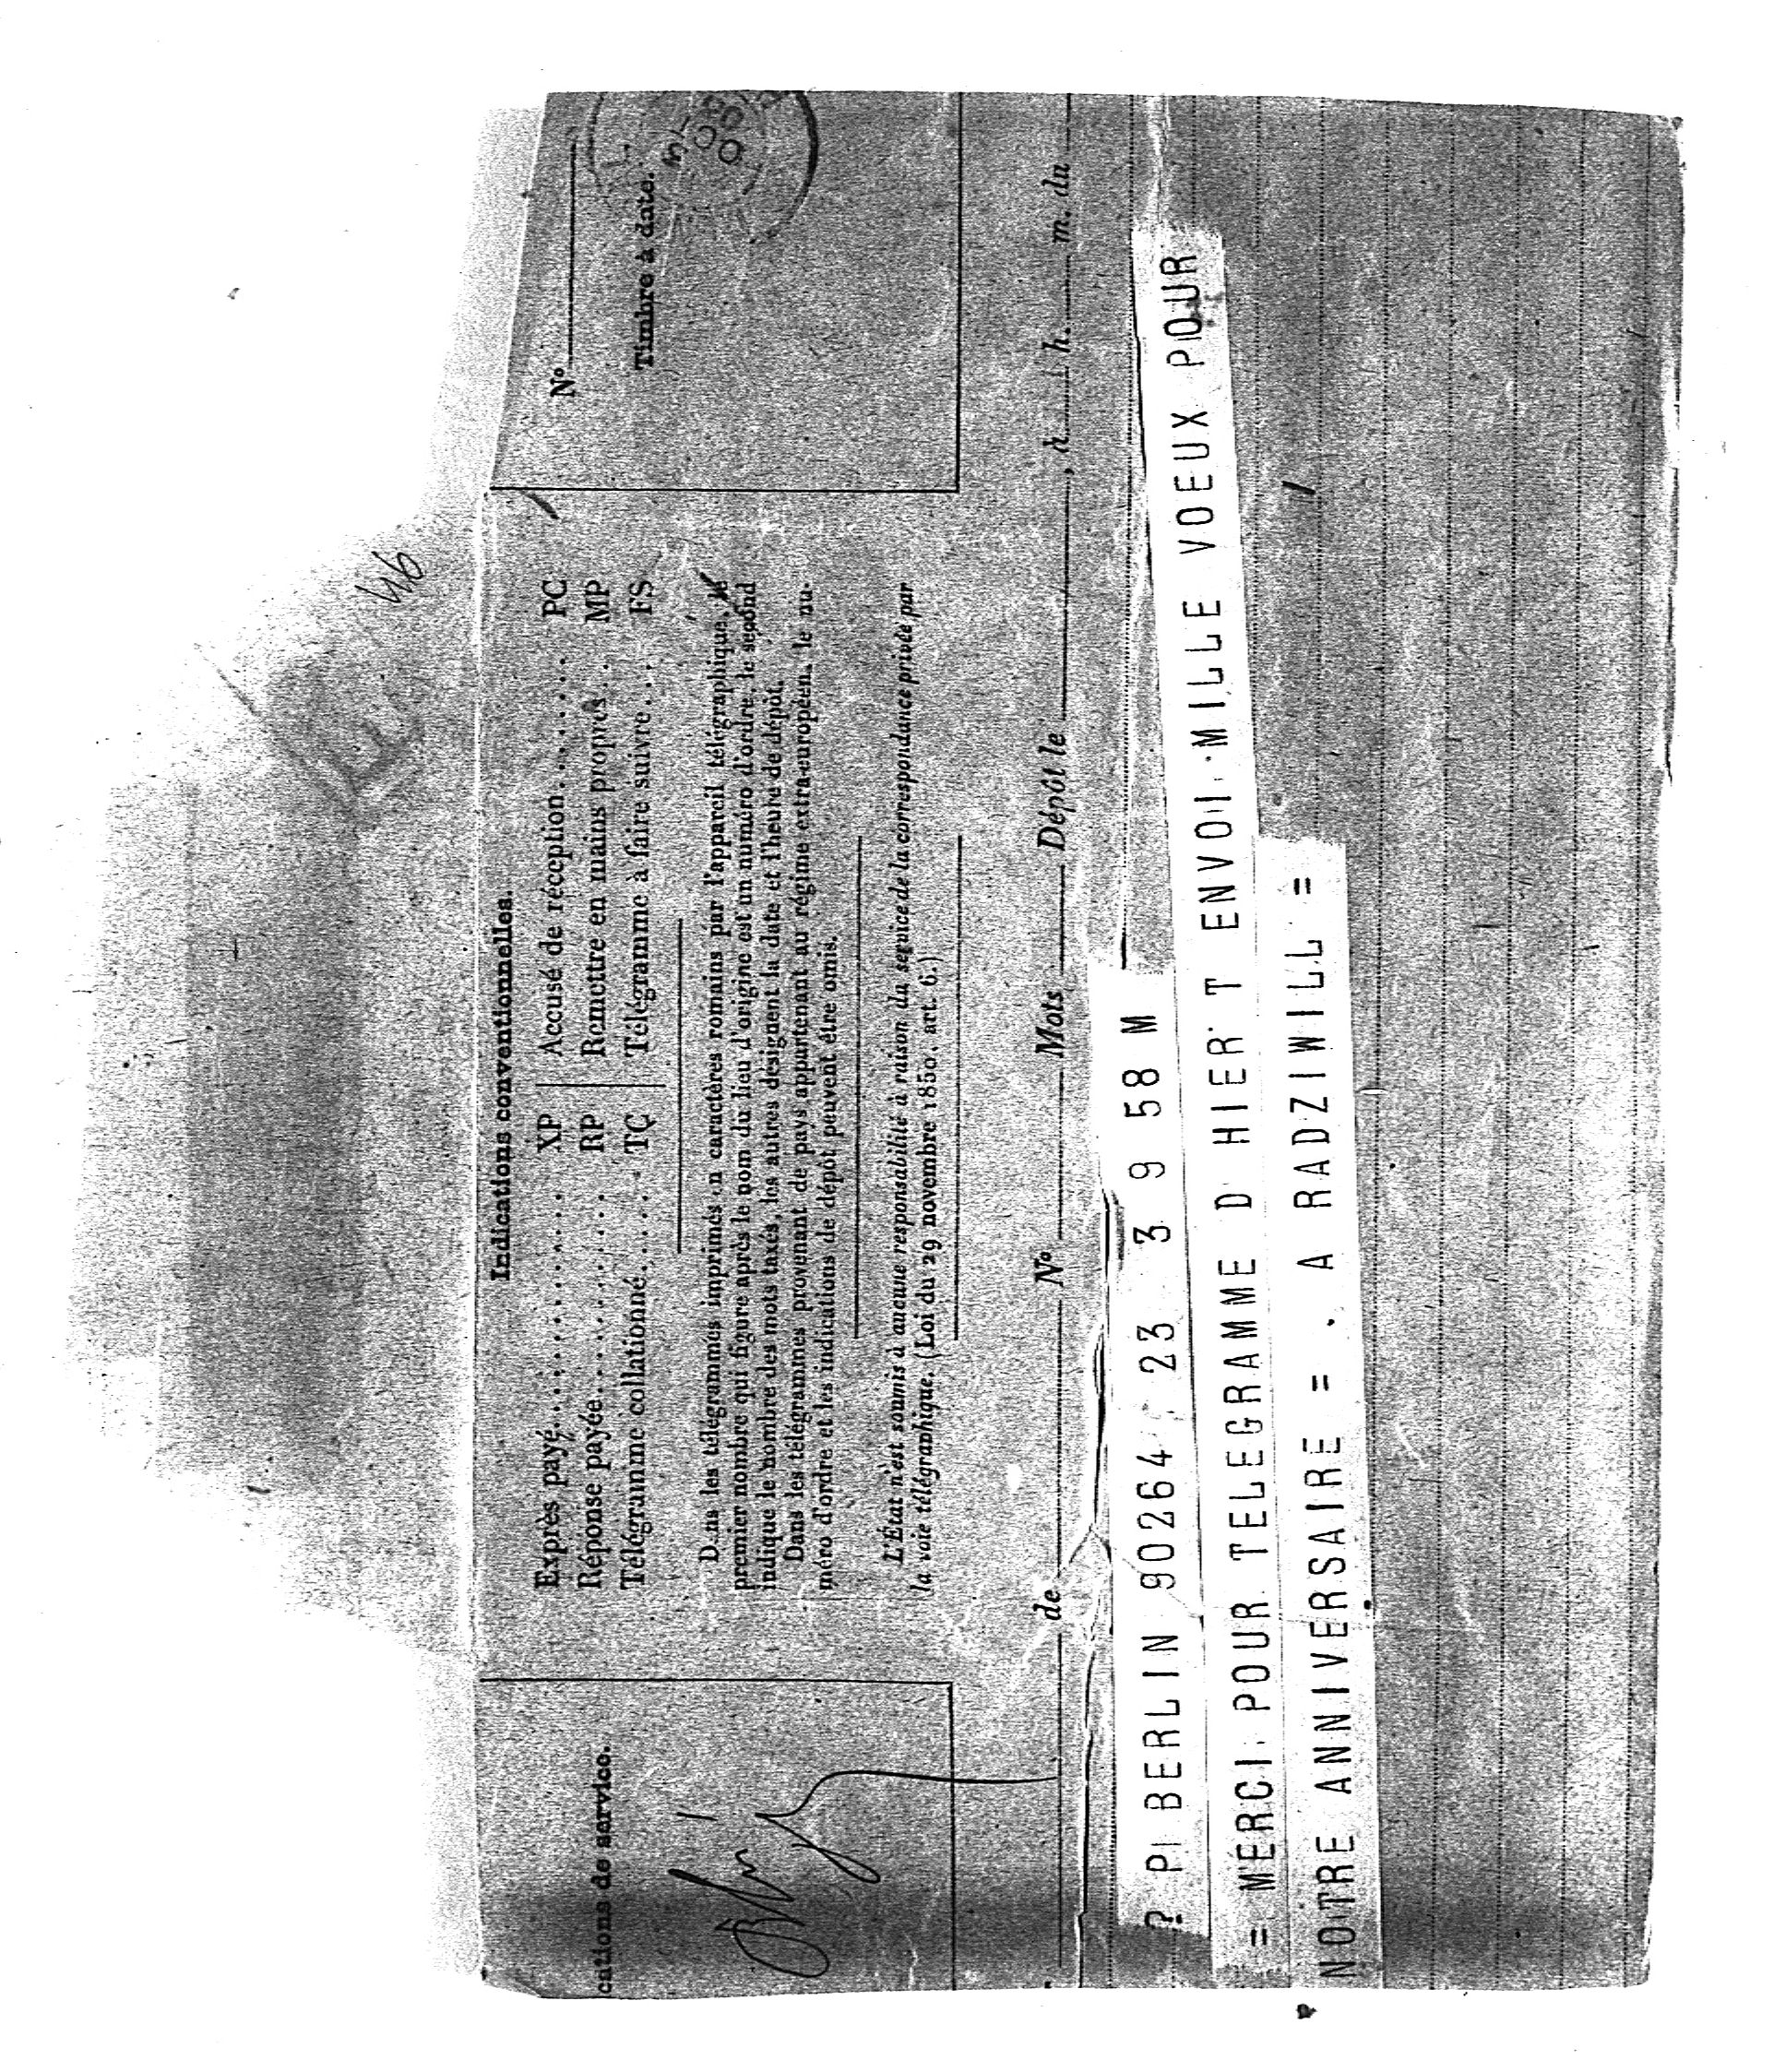 Indications conventionnelles.
Exprès payé..................... XP
Réponse payée............... RP
Télégramme collationné....... TC
Accusé de réception......... PC
Remettre en mains propres... MP
Télégramme à faire suivre.... FS
D ns les télégrammes imprimés en caractères romains par l'appareil télégraphique, le
premier nombre qui figure après le nom du lieu d'origine est un numéro d'ordre, le second
indique le nombre des mots taxés, les autres désignent la date et l'heure de dépôt.
Dans les télégrammes provenant de pays appartenant au régime extra-européen, le nu-
méro d'ordre et les indications de dépôt peuvent être omis.
L'État n'est soumis à aucune responsabilité à raison du service de la correspondance privée par
la voie télégraphique. (Loi du 29 novembre 1850, art. 6.)
cations de service.
N°
Timbre à date.
46
de N° Mots Dépôt le , à h. m. du
? PI BERLIN 90264 23 3 9 58 M
= MERCI POUR TELEGRAMME D HIER T ENVOI MILLE VOEUX POUR
NOTRE ANNIVERSAIRE = . A RADZIWILL =